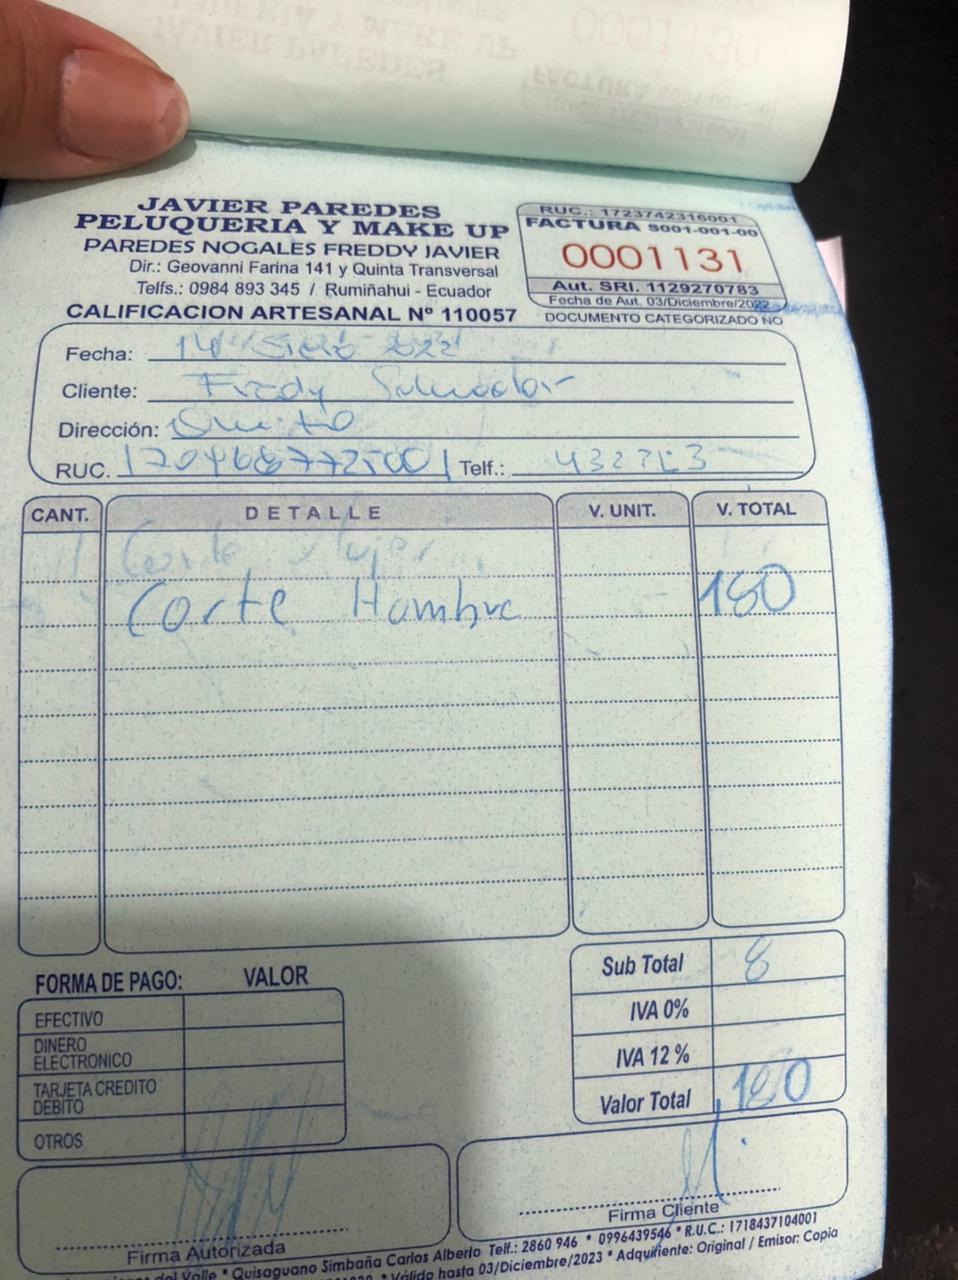 0001130
JAVIER PAREDES
PELUQUERIA Y MAKE UP
PAREDES NOGALES FREDDY JAVIER
Dir.: Geovanni Farina 141 y Quinta Transversal
Telfs.: 0984 893 345 / Rumiñahui - Ecuador
CALIFICACION ARTESANAL Nº 110057
RUC.: 1723742316001
FACTURA S001-001-00
0001131
Aut. SRI. 1129270783
Fecha de Aut. 03/Diciembre/2022
DOCUMENTO CATEGORIZADO NO
Fecha: 14
Cliente: Fredy Salvador
Dirección: Quito
RUC. Telf.:
CANT. DETALLE V. UNIT. V. TOTAL
Corte Mujer
Corte Hombre 180
FORMA DE PAGO: VALOR
EFECTIVO
DINERO ELECTRONICO
TARJETA CREDITO DEBITO
OTROS
Sub Total 8
IVA 0%
IVA 12 %
Valor Total 180
Firma Autorizada
Firma Cliente
del Valle * Quisaguano Simbaña Carlos Alberto Telf.: 2860 946 * 0996439546 * R.U.C.: 1718437104001
* Válido hasta 03/Diciembre/2023 * Adquiriente: Original / Emisor: Copia